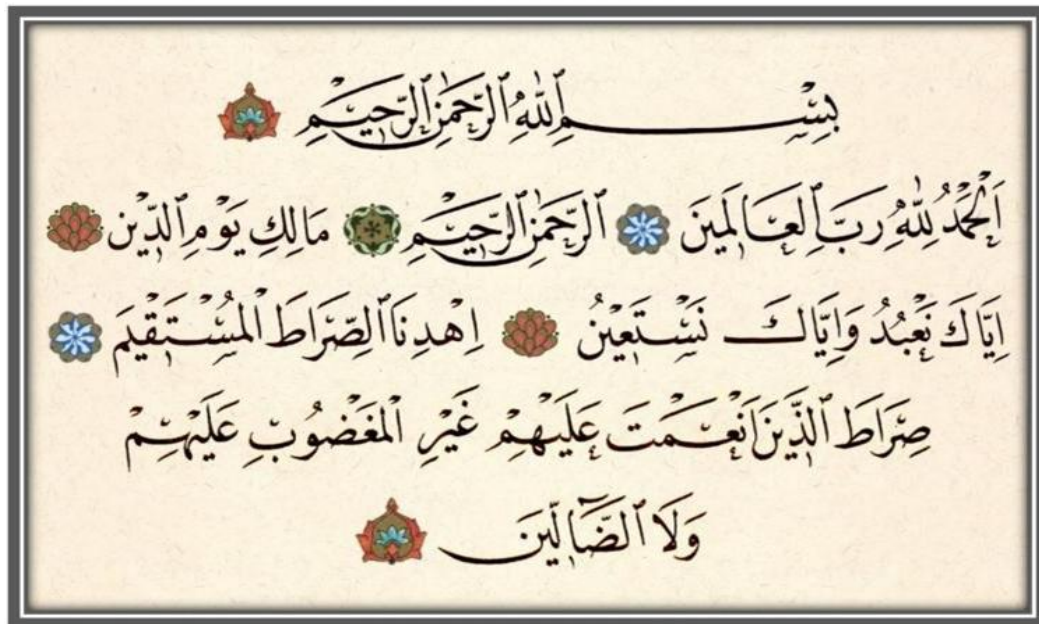 بِسْمِ ٱللّٰهِ ٱلرَّحْمٰنِ ٱلرَّحِيْمِ
اَلْحَمْدُ لِلّٰهِ رَبِّ ٱلْعَالَمِينَ ٱلرَّحْمٰنِ ٱلرَّحِيْمِ مَالِكِ يَوْمِ ٱلدِّيْنِ
اِيَّاكَ نَعْبُدُ وَاِيَّاكَ نَسْتَعِيْنُ اِهْدِنَا ٱلصِّرَاطَ ٱلْمُسْتَقِيْمَ
صِرَاطَ ٱلَّذِيْنَ اَنْعَمْتَ عَلَيْهِمْ غَيْرِ ٱلْمَغْضُوْبِ عَلَيْهِمْ
وَلَا ٱلضَّآلِّيْنَ